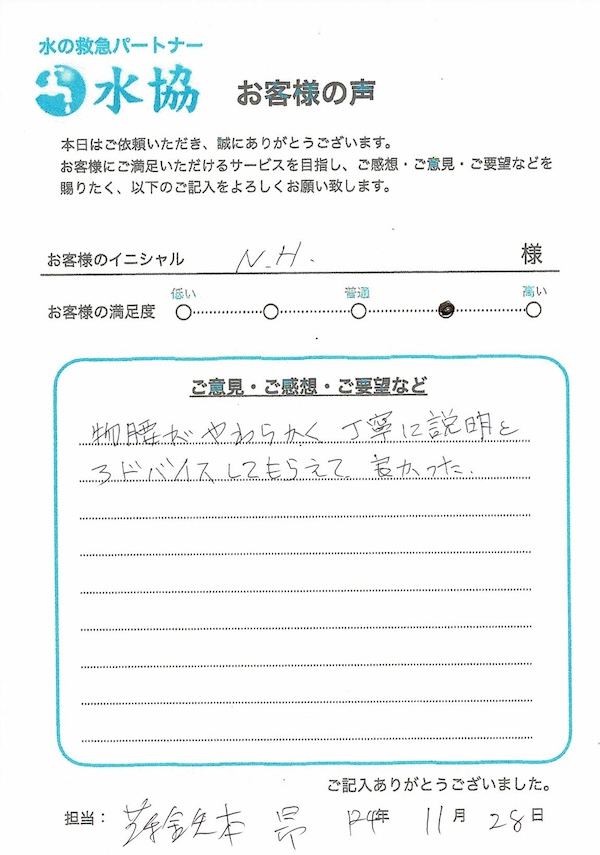 水の救急パートナー
水協
お客様の声
本日はご依頼いただき、誠にありがとうございます。
お客様にご満足いただけるサービスを目指し、ご感想・ご意見・ご要望などを
賜りたく、以下のご記入をよろしくお願い致します。
お客様のイニシャル N.H. 様
低い 普通 高い
お客様の満足度
ご意見・ご感想・ご要望など
物腰がやわらかく 丁寧に説明と
アドバイスしてもらえて 良かった.
ご記入ありがとうございました。
担当: 本 昴 年 11月 28日